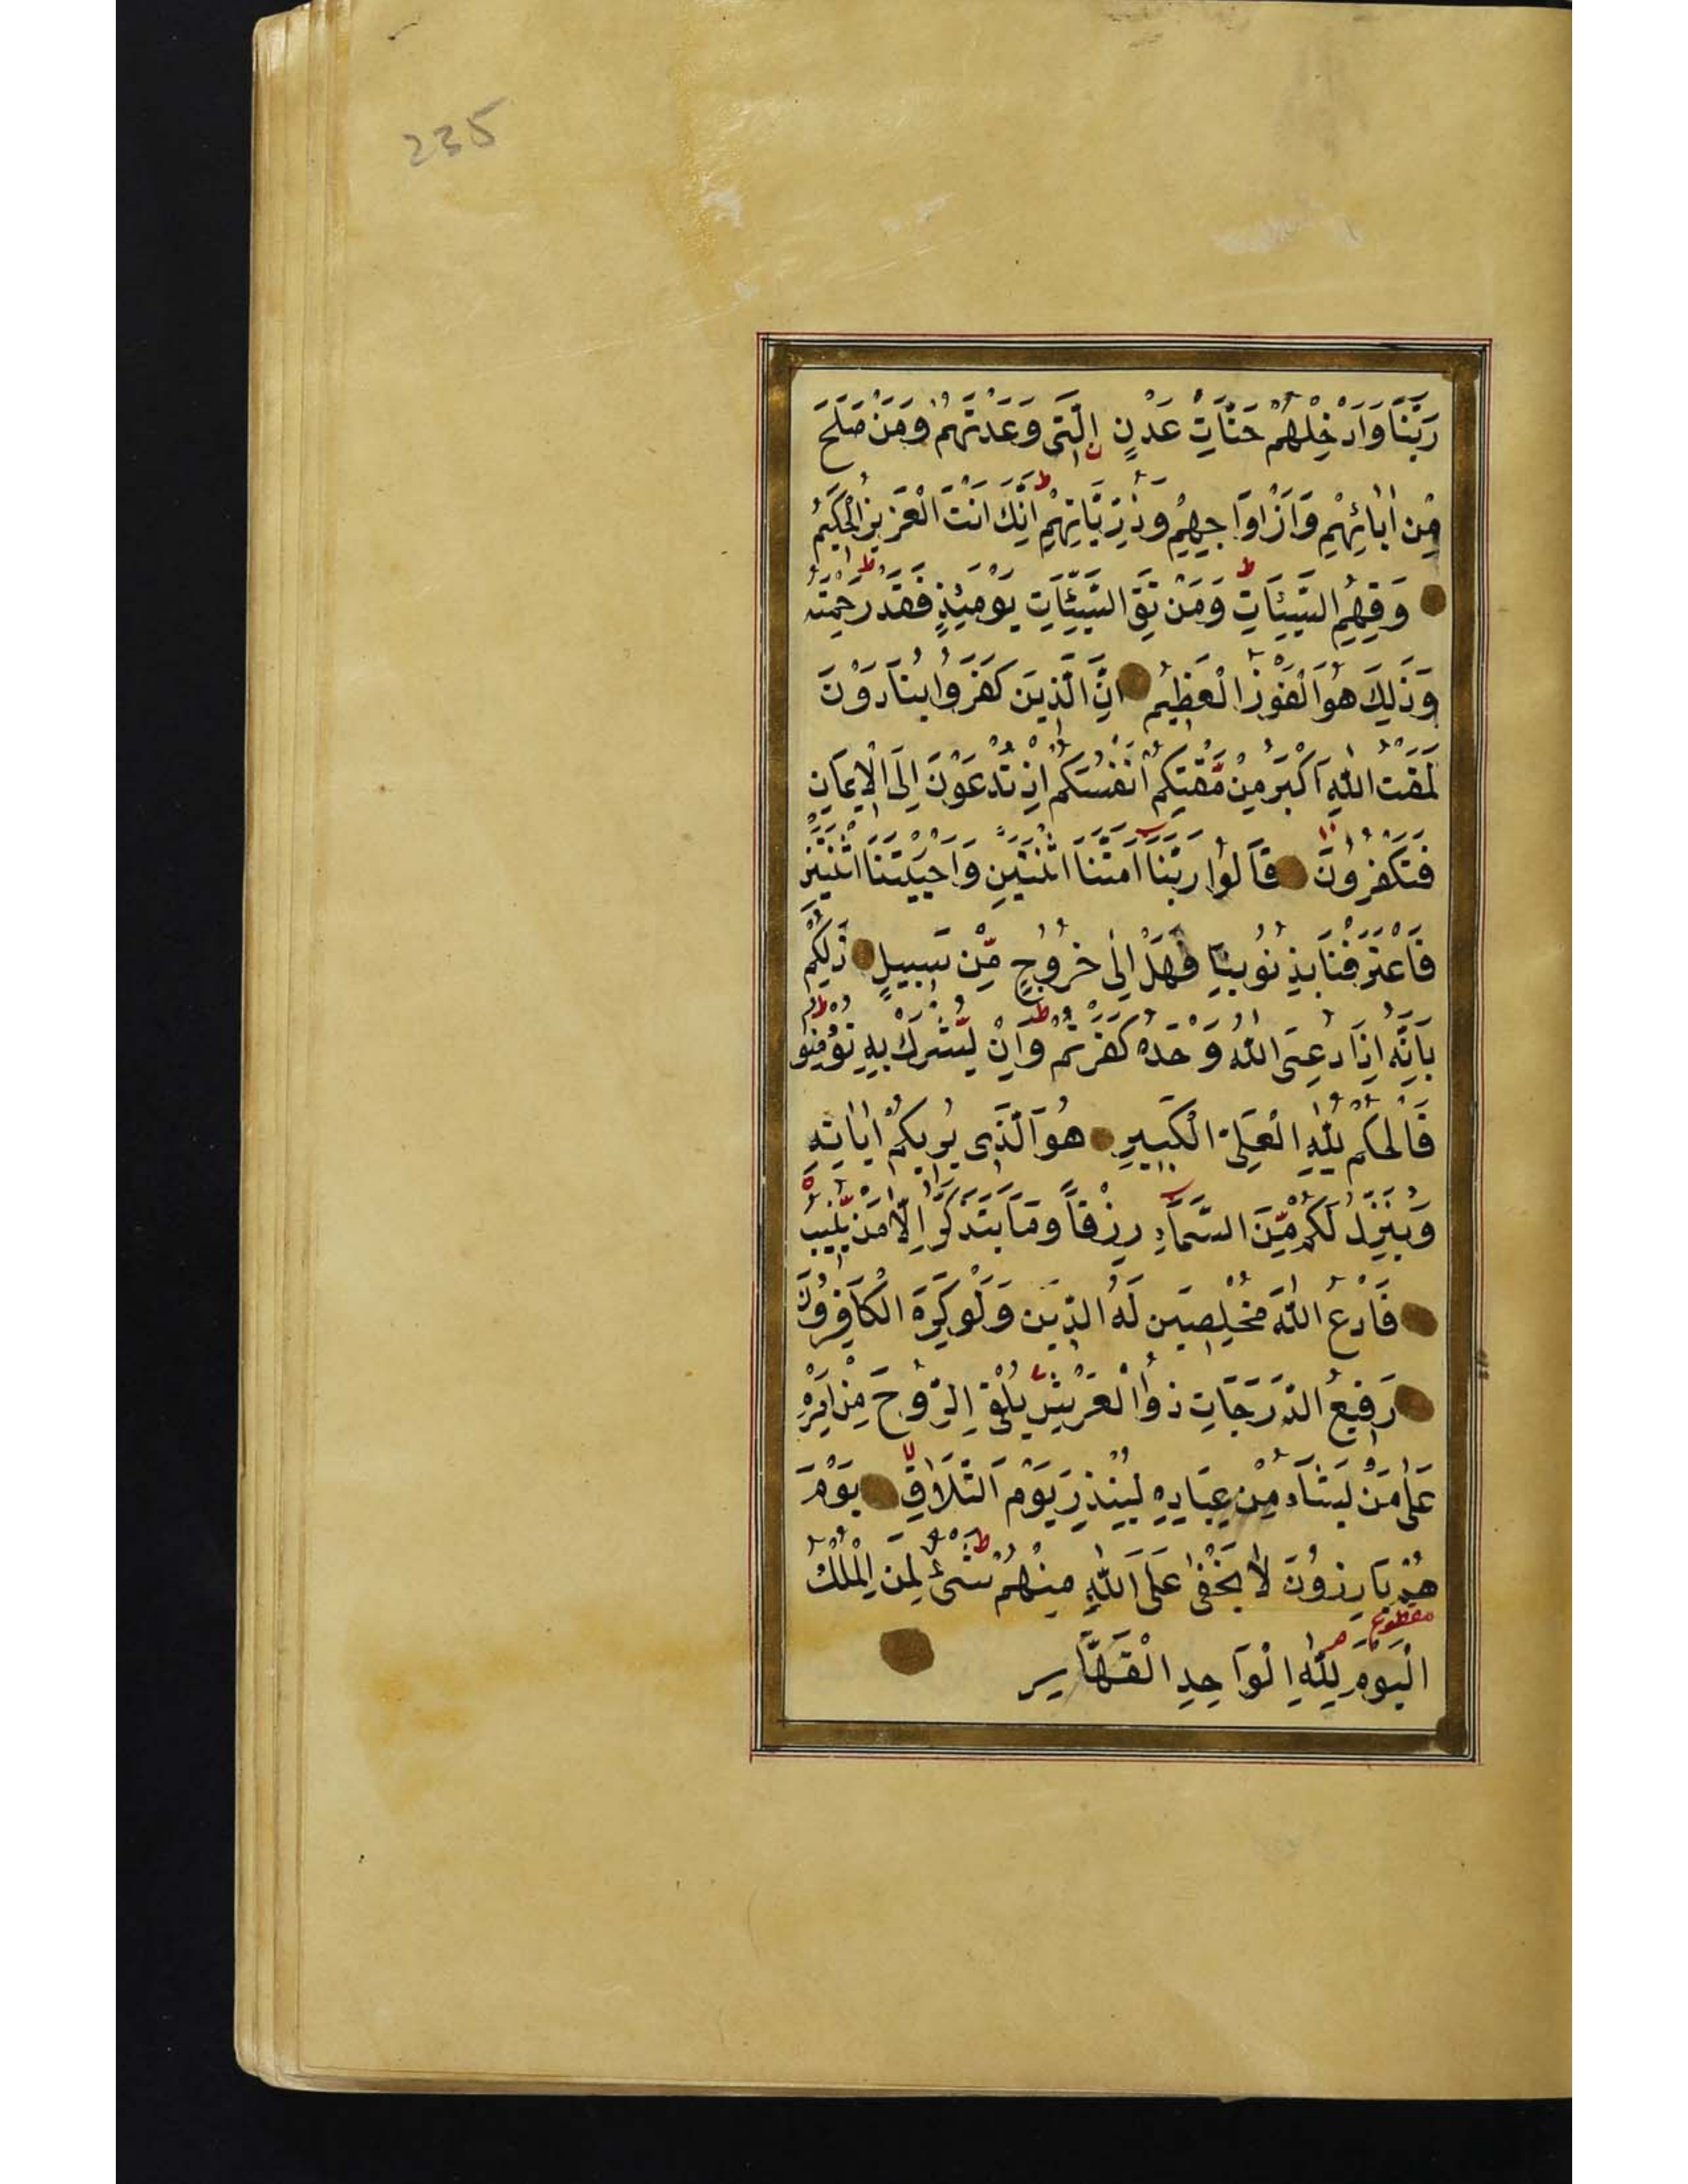 235
رَبَّنَا وَاَدْخِلْهُمْ جَنَّاتِ عَدْنٍ الَّتَى وَعَدْتَهُمْ وَمَنْ صَلَحَ
مِنْ اٰبَائِهِمْ وَاَزْوَاجِهِمْ وَذُرِّيَّاتِهِمْ ط اِنَّكَ اَنْتَ الْعَزِيزُ الْحَكِيمُ
وَقِهِمُ السَّيِّئَاتِ ط وَمَنْ تَقِ السَّيِّئَاتِ يَوْمَئِذٍ فَقَدْ رَحِمْتَهُ ط
وَذٰلِكَ هُوَ الْفَوْزُ الْعَظِيمُ اِنَّ الَّذِينَ كَفَرُوا يُنَادَوْنَ
لَمَقْتُ اللّٰهِ اَكْبَرُ مِنْ مَّقْتِكُمْ اَنْفُسَكُمْ اِذْ تُدْعَوْنَ اِلَى الْاِيمَانِ
فَتَكْفُرُونَ قَالُوا رَبَّنَا اَمَتَّنَا اثْنَتَيْنِ وَاَحْيَيْتَنَا اثْنَتَيْنِ
فَاعْتَرَفْنَا بِذُنُوبِنَا فَهَلْ اِلٰى خُرُوجٍ مِّنْ سَبِيلٍ ذٰلِكُمْ
بِاَنَّهُ اِذَا دُعِىَ اللّٰهُ وَحْدَهُ كَفَرْتُمْ ط وَاِنْ يُّشْرَكْ بِهِ تُؤْمِنُوا ط
فَالْحُكْمُ لِلّٰهِ الْعَلِىِّ الْكَبِيرِ هُوَ الَّذِى يُرِيكُمْ اٰيَاتِهِ
وَيُنَزِّلُ لَكُمْ مِّنَ السَّمَآءِ رِزْقاً وَمَا يَتَذَكَّرُ اِلَّا مَنْ يُّنِيبُ
فَادْعُ اللّٰهَ مُخْلِصِينَ لَهُ الدِّينَ وَلَوْ كَرِهَ الْكَافِرُونَ
رَفِيعُ الدَّرَجَاتِ ذُوالْعَرْشِ يُلْقِى الرُّوحَ مِنْ اَمْرِهِ
عَلٰى مَنْ يَشَآءُ مِنْ عِبَادِهِ لِيُنْذِرَ يَوْمَ التَّلَاقِ يَوْمَ
هُمْ بَارِزُونَ لَا يَخْفٰى عَلَى اللّٰهِ مِنْهُمْ شَىْءٌ ط لِمَنِ الْمُلْكُ
الْيَوْمَ لِلّٰهِ الْوَاحِدِ الْقَهَّارِ